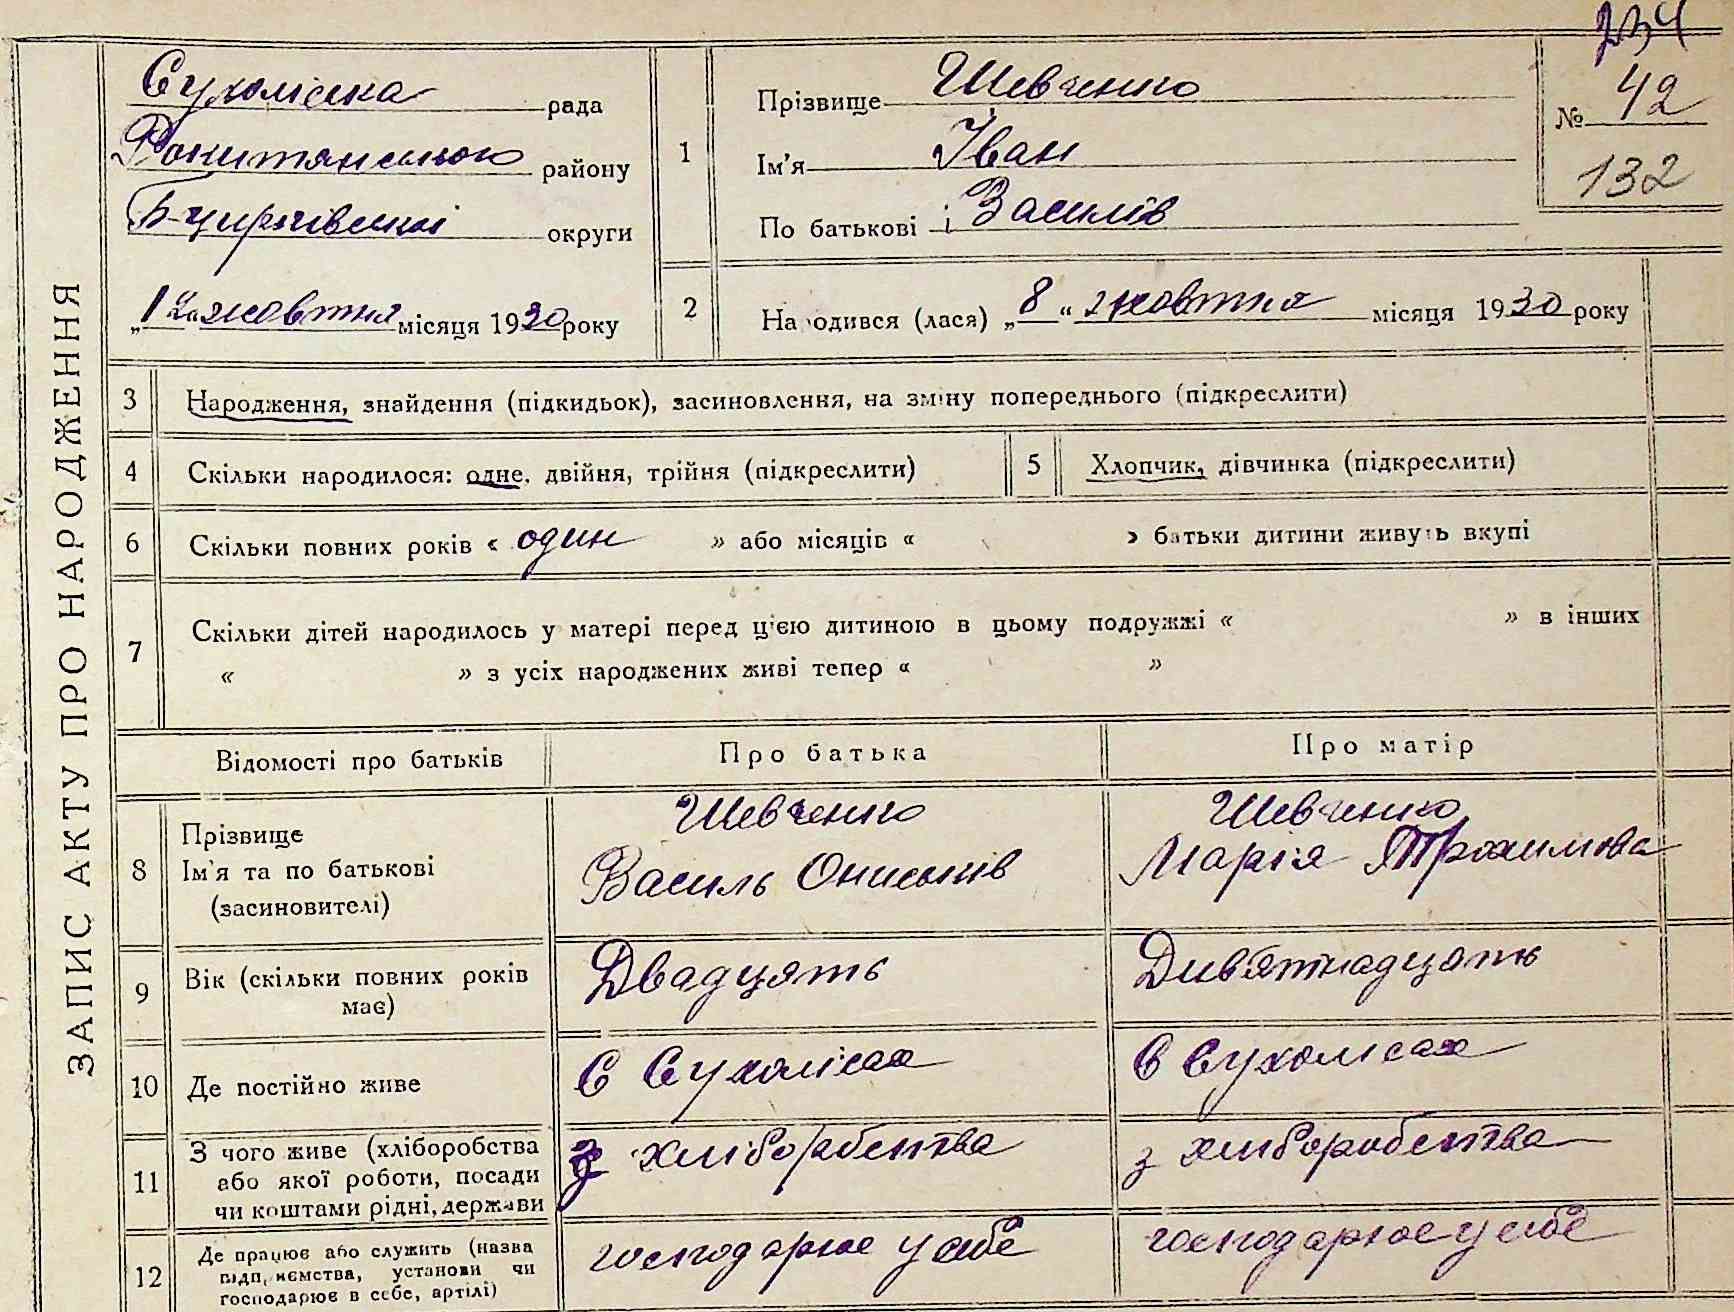 234
Сухоліська рада
Рокитянського району
Б-Церківської округи
„12“ жовтня місяця 1930 року
1
Прізвище Шевченко
Ім'я Іван
По батькові Василів
№ 42
132
2
Народився (лася) „8“ жовтня місяця 1930 року
ЗАПИС АКТУ ПРО НАРОДЖЕННЯ
3 Народження, знайдення (підкидьок), засиновлення, на зміну попереднього (підкреслити)
4 Скільки народилося: одне, двійня, трійня (підкреслити)
5 Хлопчик, дівчинка (підкреслити)
6 Скільки повних років « один » або місяців « » батьки дитини живуть вкупі
7 Скільки дітей народилось у матері перед цією дитиною в цьому подружжі « » в інших
« » з усіх народжених живі тепер « »
Відомості про батьків Про батька Про матір
8
Прізвище
Ім'я та по батькові
(засиновителі)
Шевченко
Василь Ониськів
Шевченко
Марія Трохимова
9
Вік (скільки повних років
має)
Двадцять
Дивятнадцять
10 Де постійно живе
в Сухолісах
в Сухолісах
11
З чого живе (хліборобства
або якої роботи, посади
чи коштами рідні, держави
з хліборобства
з хліборобства
12
Де працює або служить (назва
підприємства, установи чи
господарює в себе, артілі)
господарює у себе
господарює у себе